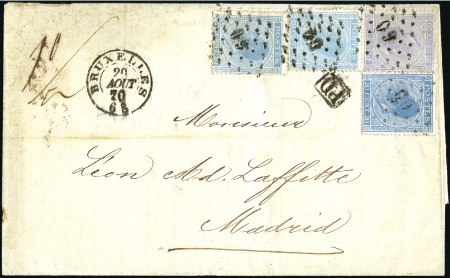 BRUXELLES
20
AOUT
70
6 S
PD
60
60
60
60
Monsieur
Léon Ad. Laffitte
Madrid